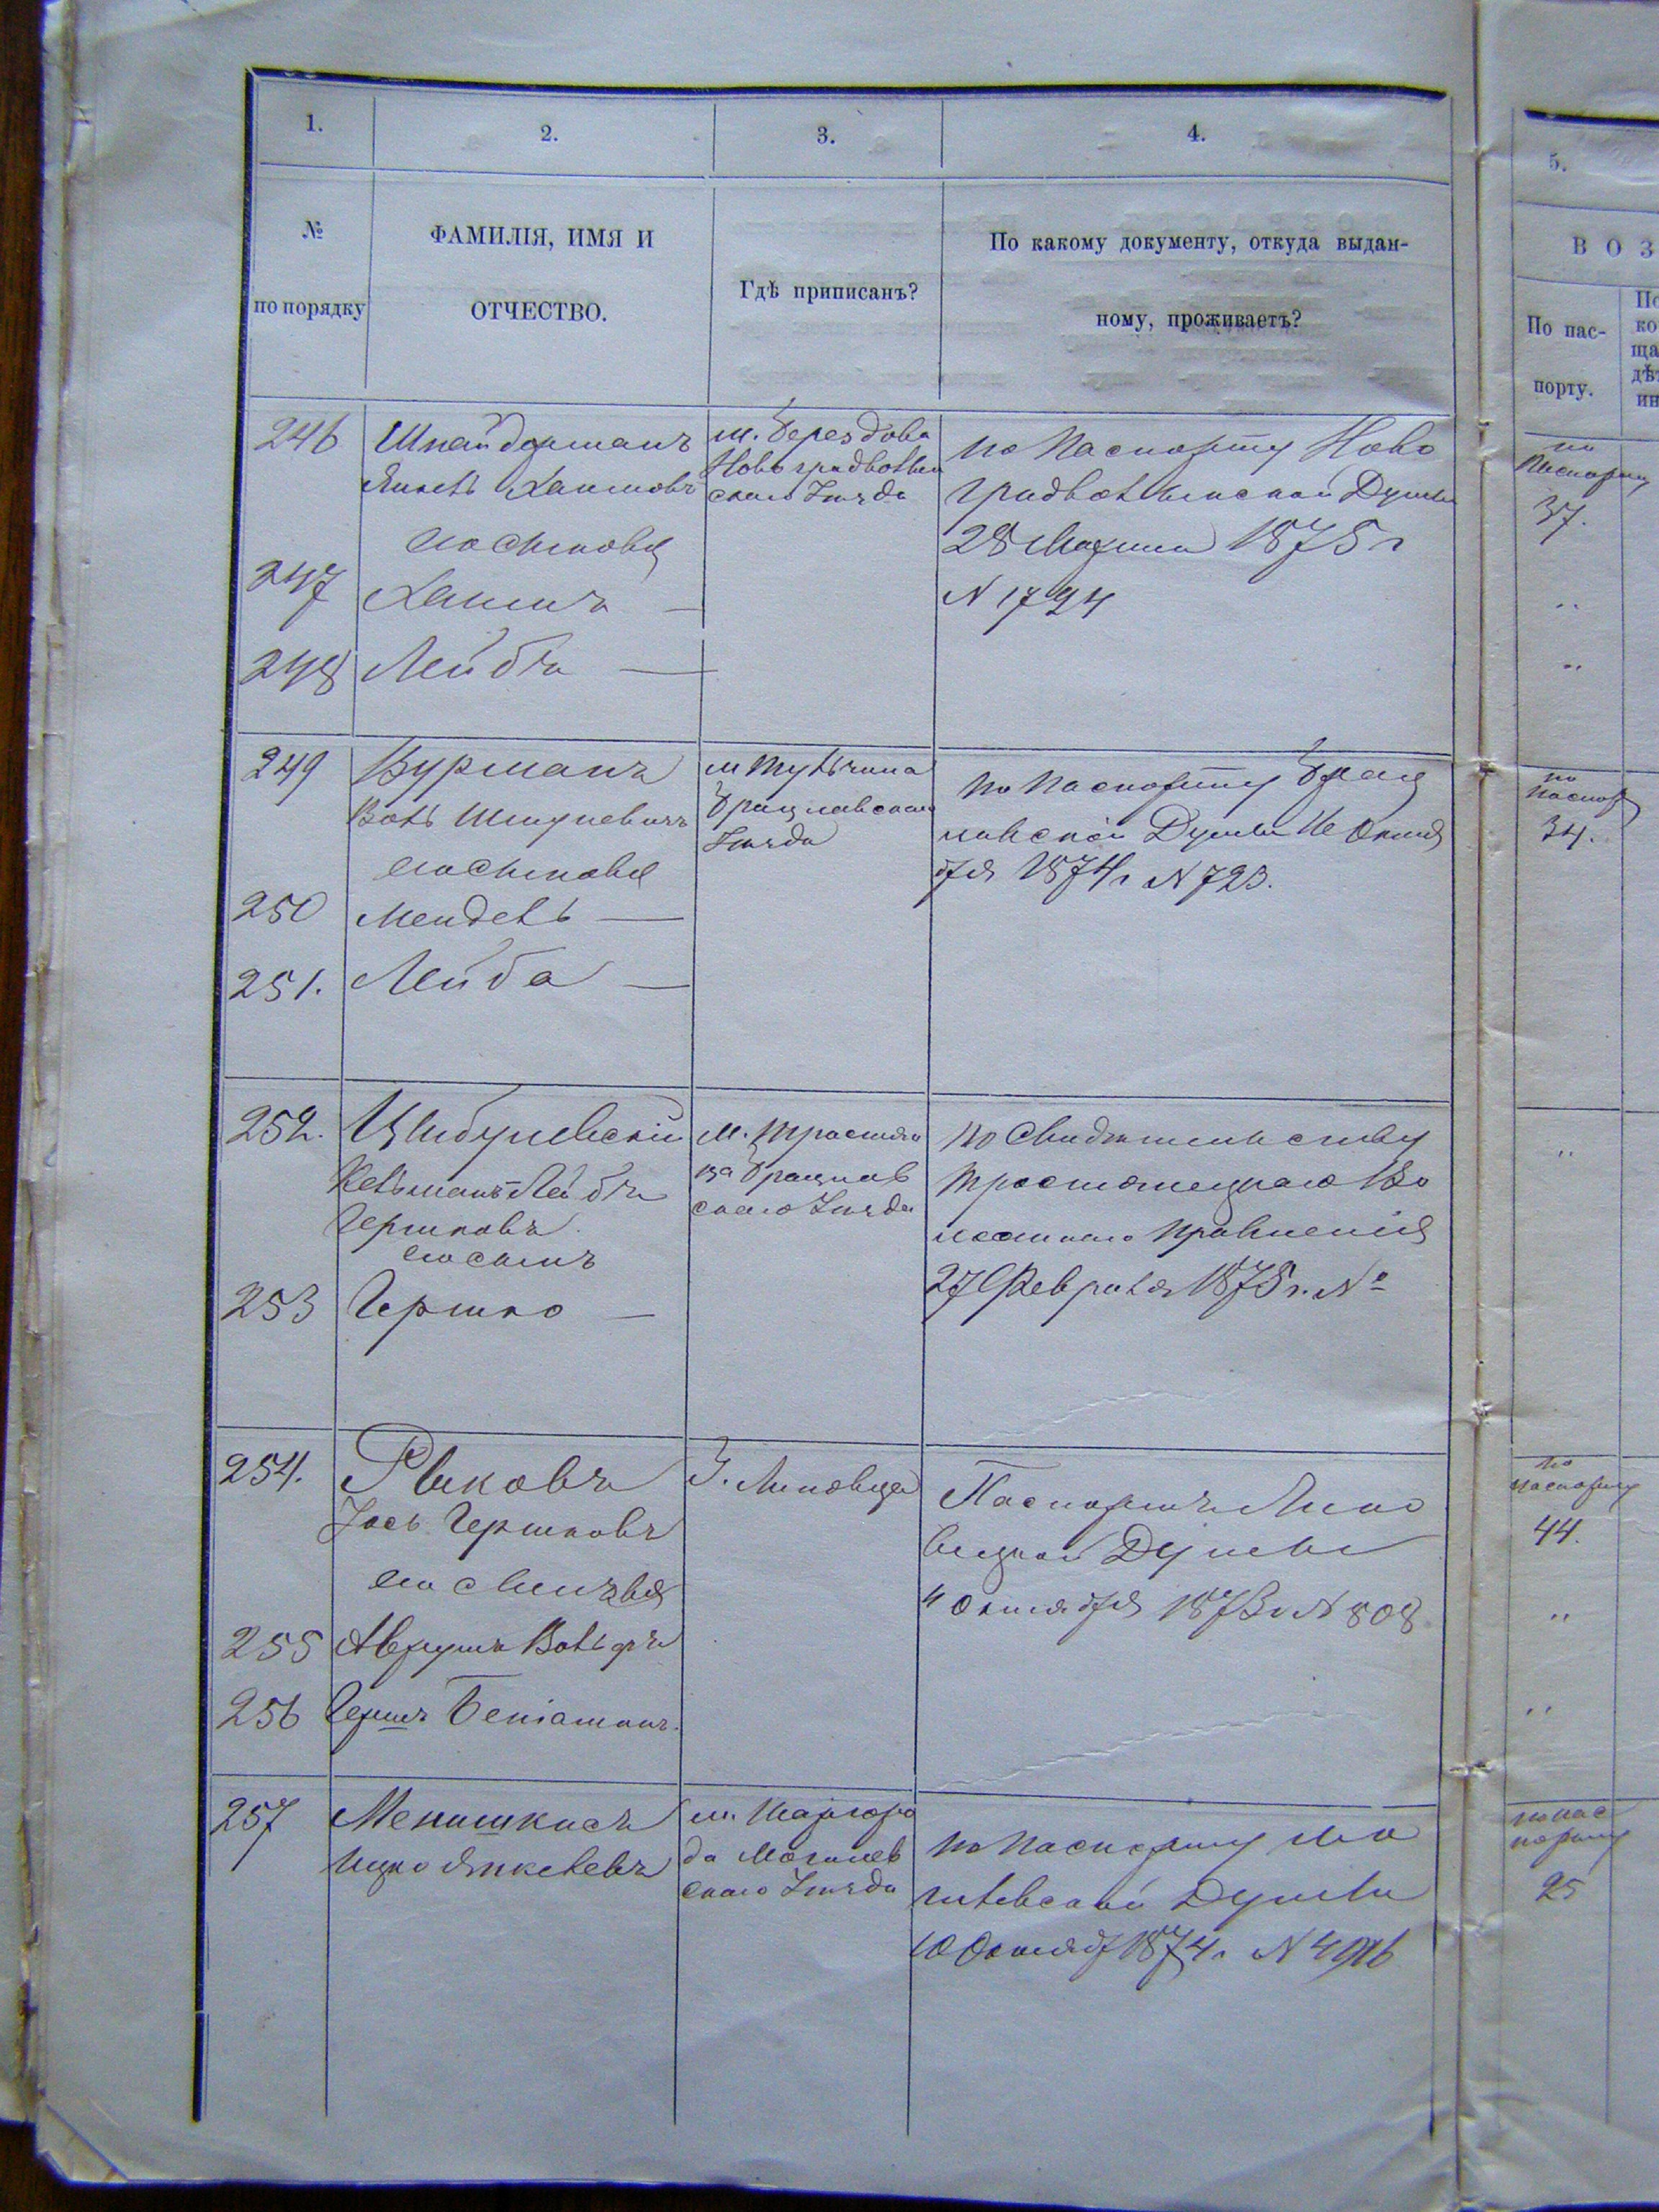 1.
2.
3.
4.
5.
№
по порядку
ФАМИЛІЯ, ИМЯ И
ОТЧЕСТВО.
Гдѣ приписанъ?
По какому документу, откуда выдан-
ному, проживаетъ?
В О З
По пас-
порту.
По
ко
ща
дѣт
ин
246
Шнайдерманъ
Янкель Хаимовъ
его сыновья
м. Берездова
Новоградволын
скаго Уѣзда
по Паспорту Ново
градволынской Думы
28 1875 г
N 1794
по
Паспорту
37.
247
Хаимъ —
"
248
Лейба —
"
249
Вурманъ
Волъ Шмулевичъ
его сыновья
м Тульчина
Брацлавскаго
Уѣзда
по паспорту Брац
лавской Думы Октя
бря 1874 г N 723.
по
паспор
34.
250
Мендель —
251.
Лейба —
252.
Цыбулевскій
Кельманъ Лейба
Гершковъ
его сынъ
м. Тростян
ца Брацлав
скаго Уѣзда
по Свидѣтельству
Тростянецкаго Во
лостнаго Правленія
27 Февраля 1875 г. №
"
253
Гершко —
254.
Рыковъ
Іось Гершковъ
его сыновья
Г. Липовца
Паспортъ Липо
вецкой Думы
11 Октября 1873 г N 808
по
паспорту
44.
255
Аврумъ Вольфъ
"
256
Гершъ Беніаминъ.
"
257
Менишкисъ
Ицко Янкелевъ
м. Шаргоро
да Могилев
скаго Уѣзда
по Паспорту Мо
гилевской Думы
10 Октяб 1874 г. N
по пас
порту
25